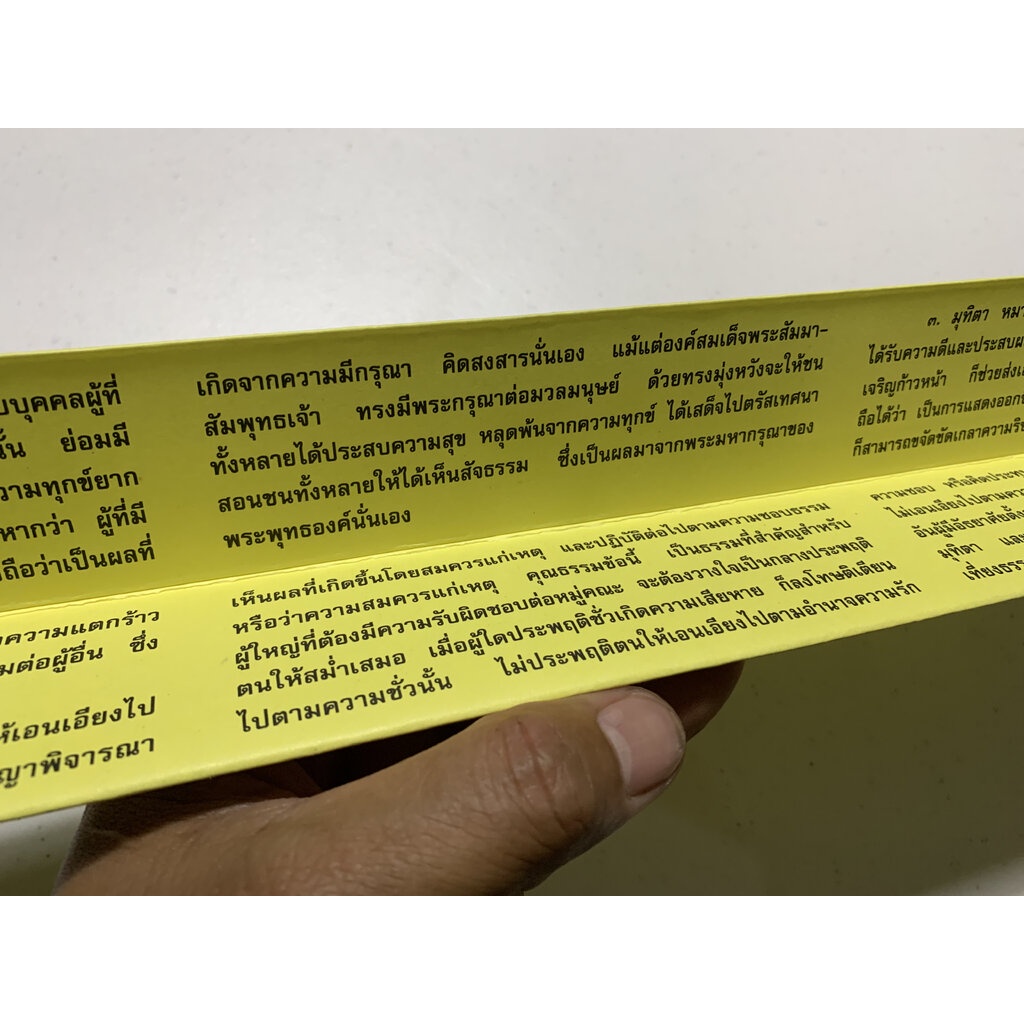 บุคคลผู้ที่
ย่อมมี
ความทุกข์ยาก
หากว่า ผู้ที่มี
ถือว่าเป็นผลที่
เกิดจากความมีกรุณา คิดสงสารนั่นเอง แม้แต่องค์สมเด็จพระสัมมา-
สัมพุทธเจ้า ทรงมีพระกรุณาต่อมวลมนุษย์ ด้วยทรงมุ่งหวังจะให้ชน
ทั้งหลายได้ประสบความสุข หลุดพ้นจากความทุกข์ ได้เสด็จไปตรัสเทศนา
สอนชนทั้งหลายให้ได้เห็นสัจธรรม ซึ่งเป็นผลมาจากพระมหากรุณาของ
พระพุทธองค์นั่นเอง
๓. มุทิตา
ได้รับความดีและประสบ
เจริญก้าวหน้า ก็ช่วยส่ง
ถือได้ว่า เป็นการแสดงออก
ก็สามารถขจัดขัดเกลาความ
ความแตกร้าว
ต่อผู้อื่น ซึ่ง
ให้เอนเอียงไป
พิจารณา
เห็นผลที่เกิดขึ้นโดยสมควรแก่เหตุ และปฏิบัติต่อไปตามความชอบธรรม
หรือว่าความสมควรแก่เหตุ คุณธรรมข้อนี้ เป็นธรรมที่สำคัญสำหรับ
ผู้ใหญ่ที่ต้องมีความรับผิดชอบต่อหมู่คณะ จะต้องวางใจเป็นกลางประพฤติ
ตนให้สม่ำเสมอ เมื่อผู้ใดประพฤติชั่วเกิดความเสียหาย ก็ลงโทษติเตียน
ไปตามความชั่วนั้น ไม่ประพฤติตนให้เอนเอียงไปตามอำนาจความรัก
ความชอบ หรือคิดประทุ
ไม่เอนเอียงไปตามคว
อันผู้มีอัธยาศัยตั้ง
มุทิตา และ
เที่ยงธรร